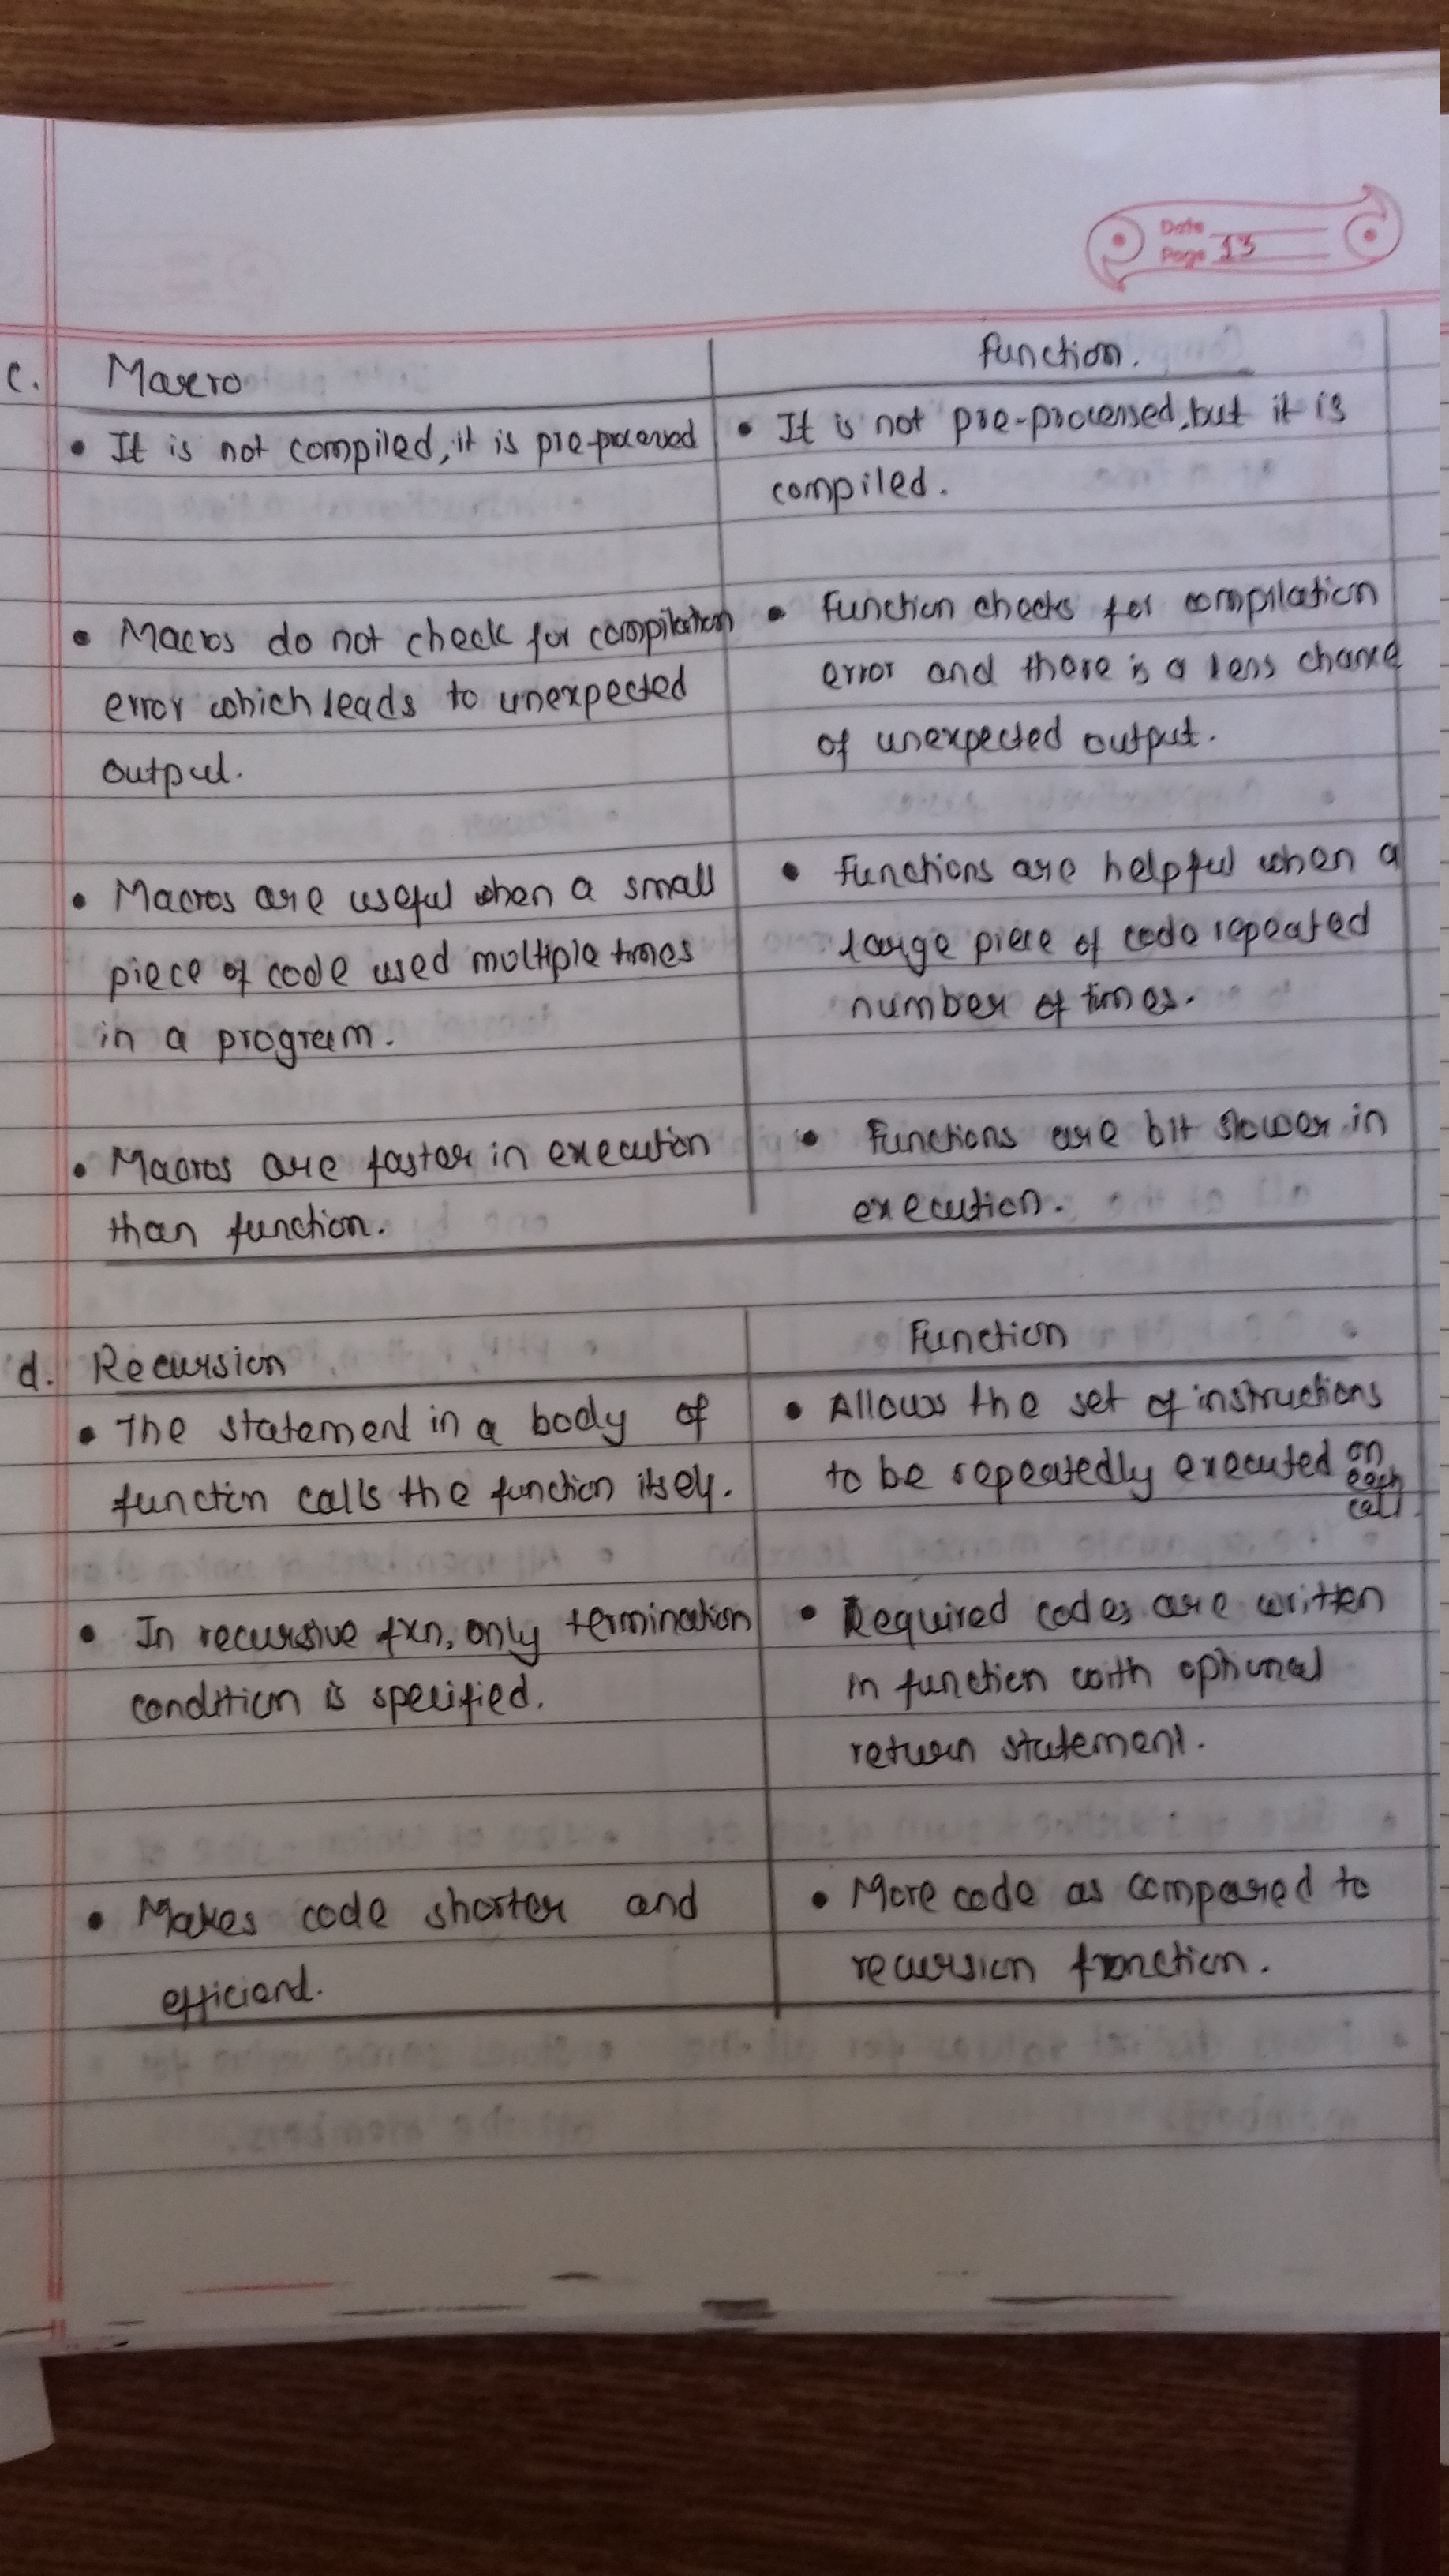 Date
Page 13
c. Macro
function.
• It is not compiled, it is pre-processed
• It is not pre-processed, but it is
compiled.
• Macros do not check for compilation
error which leads to unexpected
output.
• Function checks for compilation
error and there is a less chance
of unexpected output.
• Macros are useful when a small
piece of code used multiple times
in a program.
• Functions are helpful when a
large piece of code repeated
number of times.
• Macros are faster in execution
than function.
• Functions are bit slower in
execution.
d. Recursion
Function
• The statement in a body of
function calls the function itself.
• Allows the set of instructions
to be repeatedly executed on
each
call.
• In recursive fxn, only termination
condition is specified.
• Required codes are written
in function with optional
return statement.
• Makes code shorter and
efficient.
• More code as compared to
recursion function.